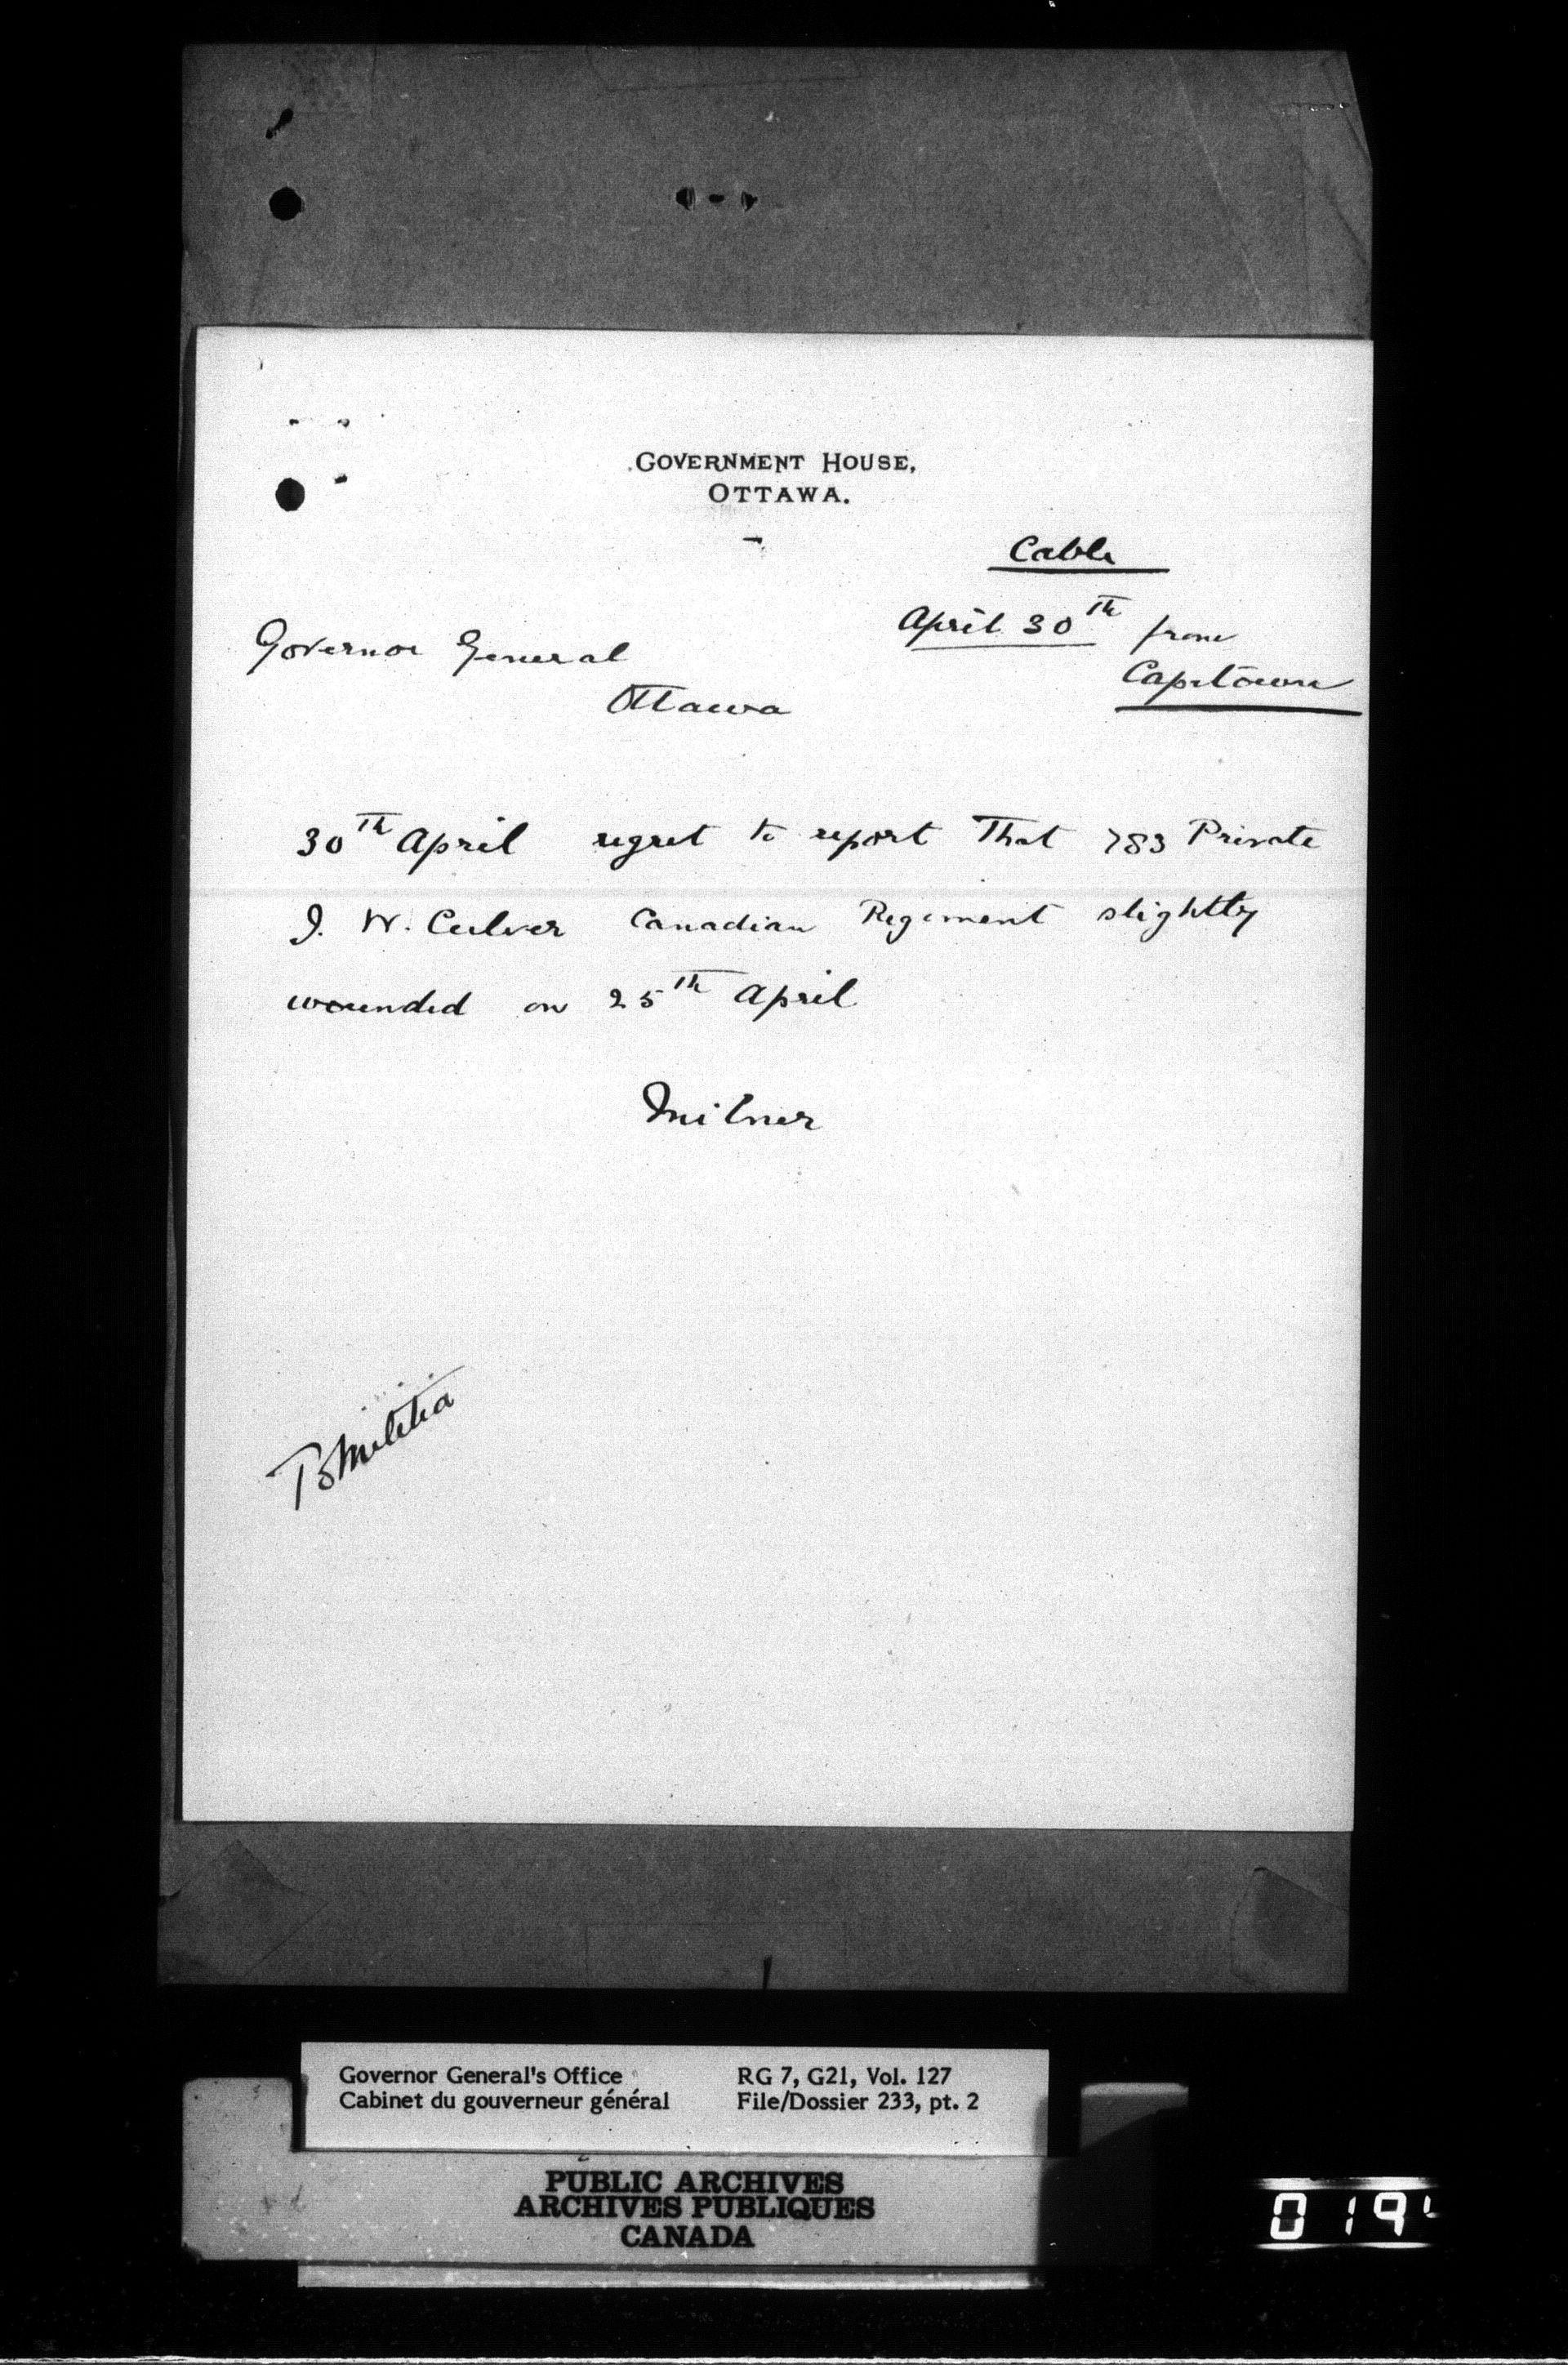 GOVERNMENT HOUSE,
OTTAWA.
Cable
April 30th from
Capetown
Governor General
Ottawa
30th April regret to report That 783 Private
J. W. Culver Canadian Regiment slightly
wounded on 25th April
Milner
To Militia
Governor General's Office RG 7, G21, Vol. 127
Cabinet du gouverneur général File/Dossier 233, pt. 2
PUBLIC ARCHIVES
ARCHIVES PUBLIQUES
CANADA
019